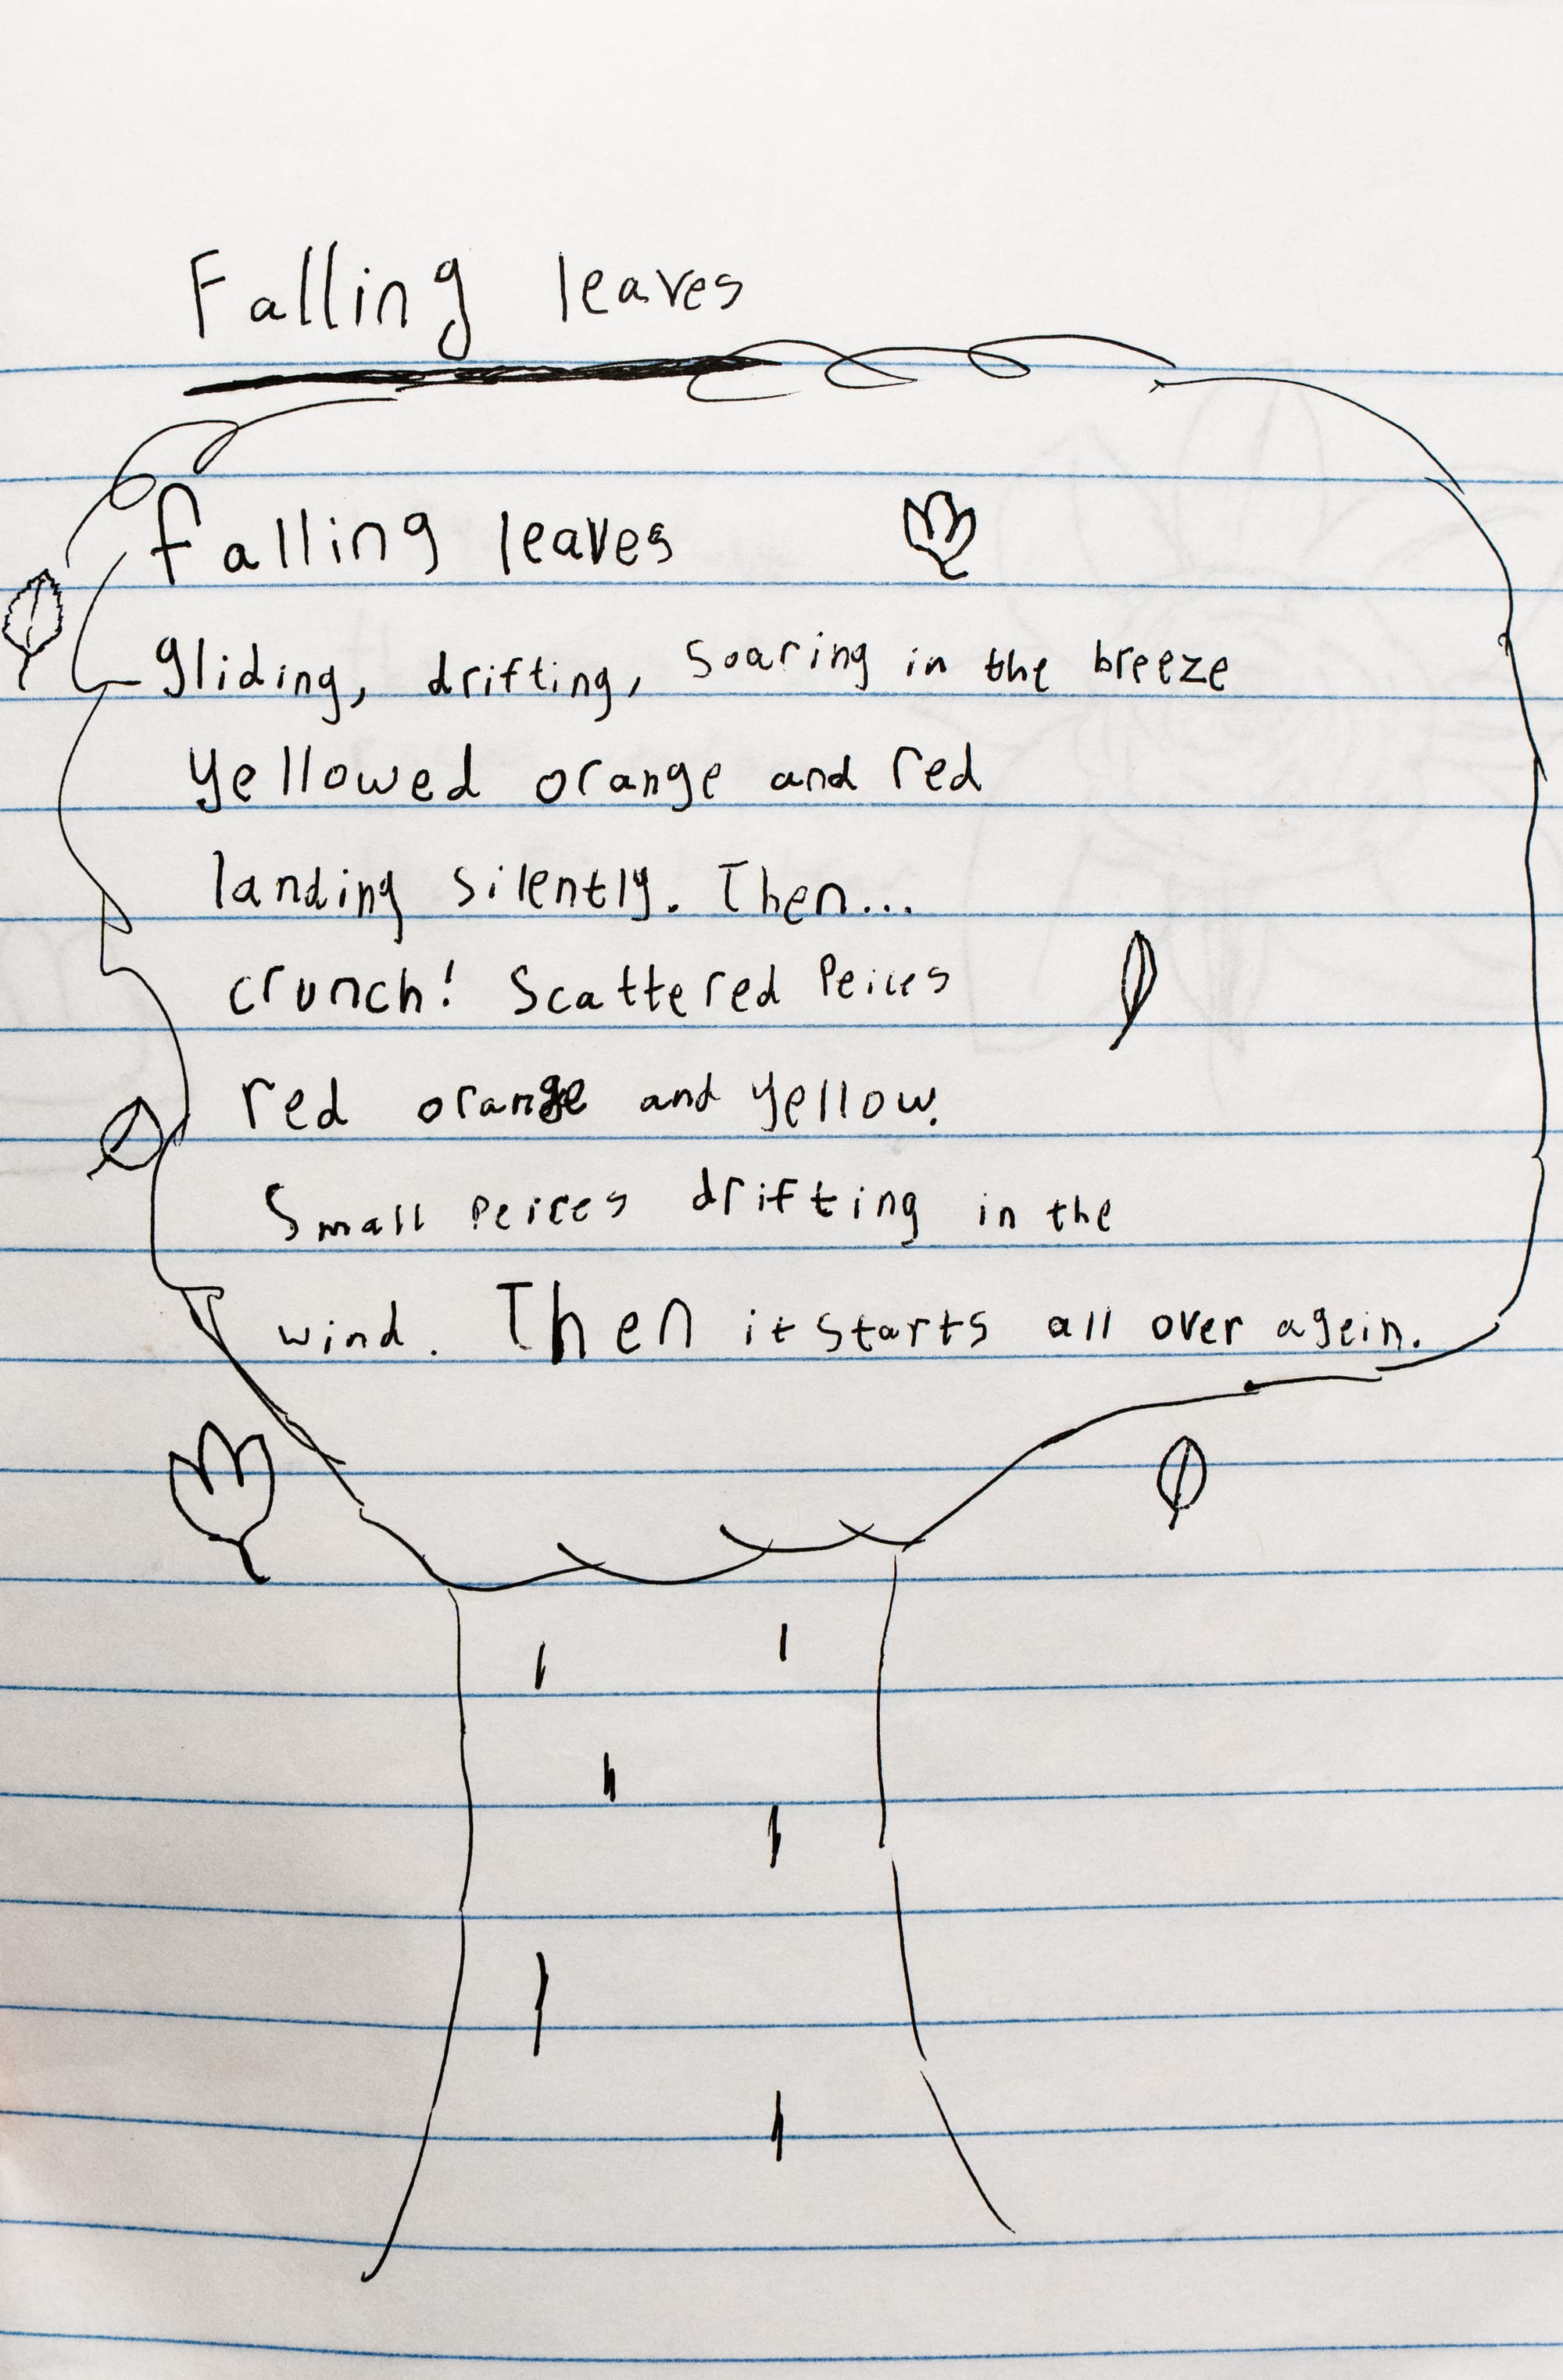 Falling leaves
falling leaves
gliding, drifting, soaring in the breeze
yellowed orange and red
landing silently. Then...
crunch! Scattered Peices
red orange and yellow.
Small Peices drifting in the
wind. Then it starts all over agein.